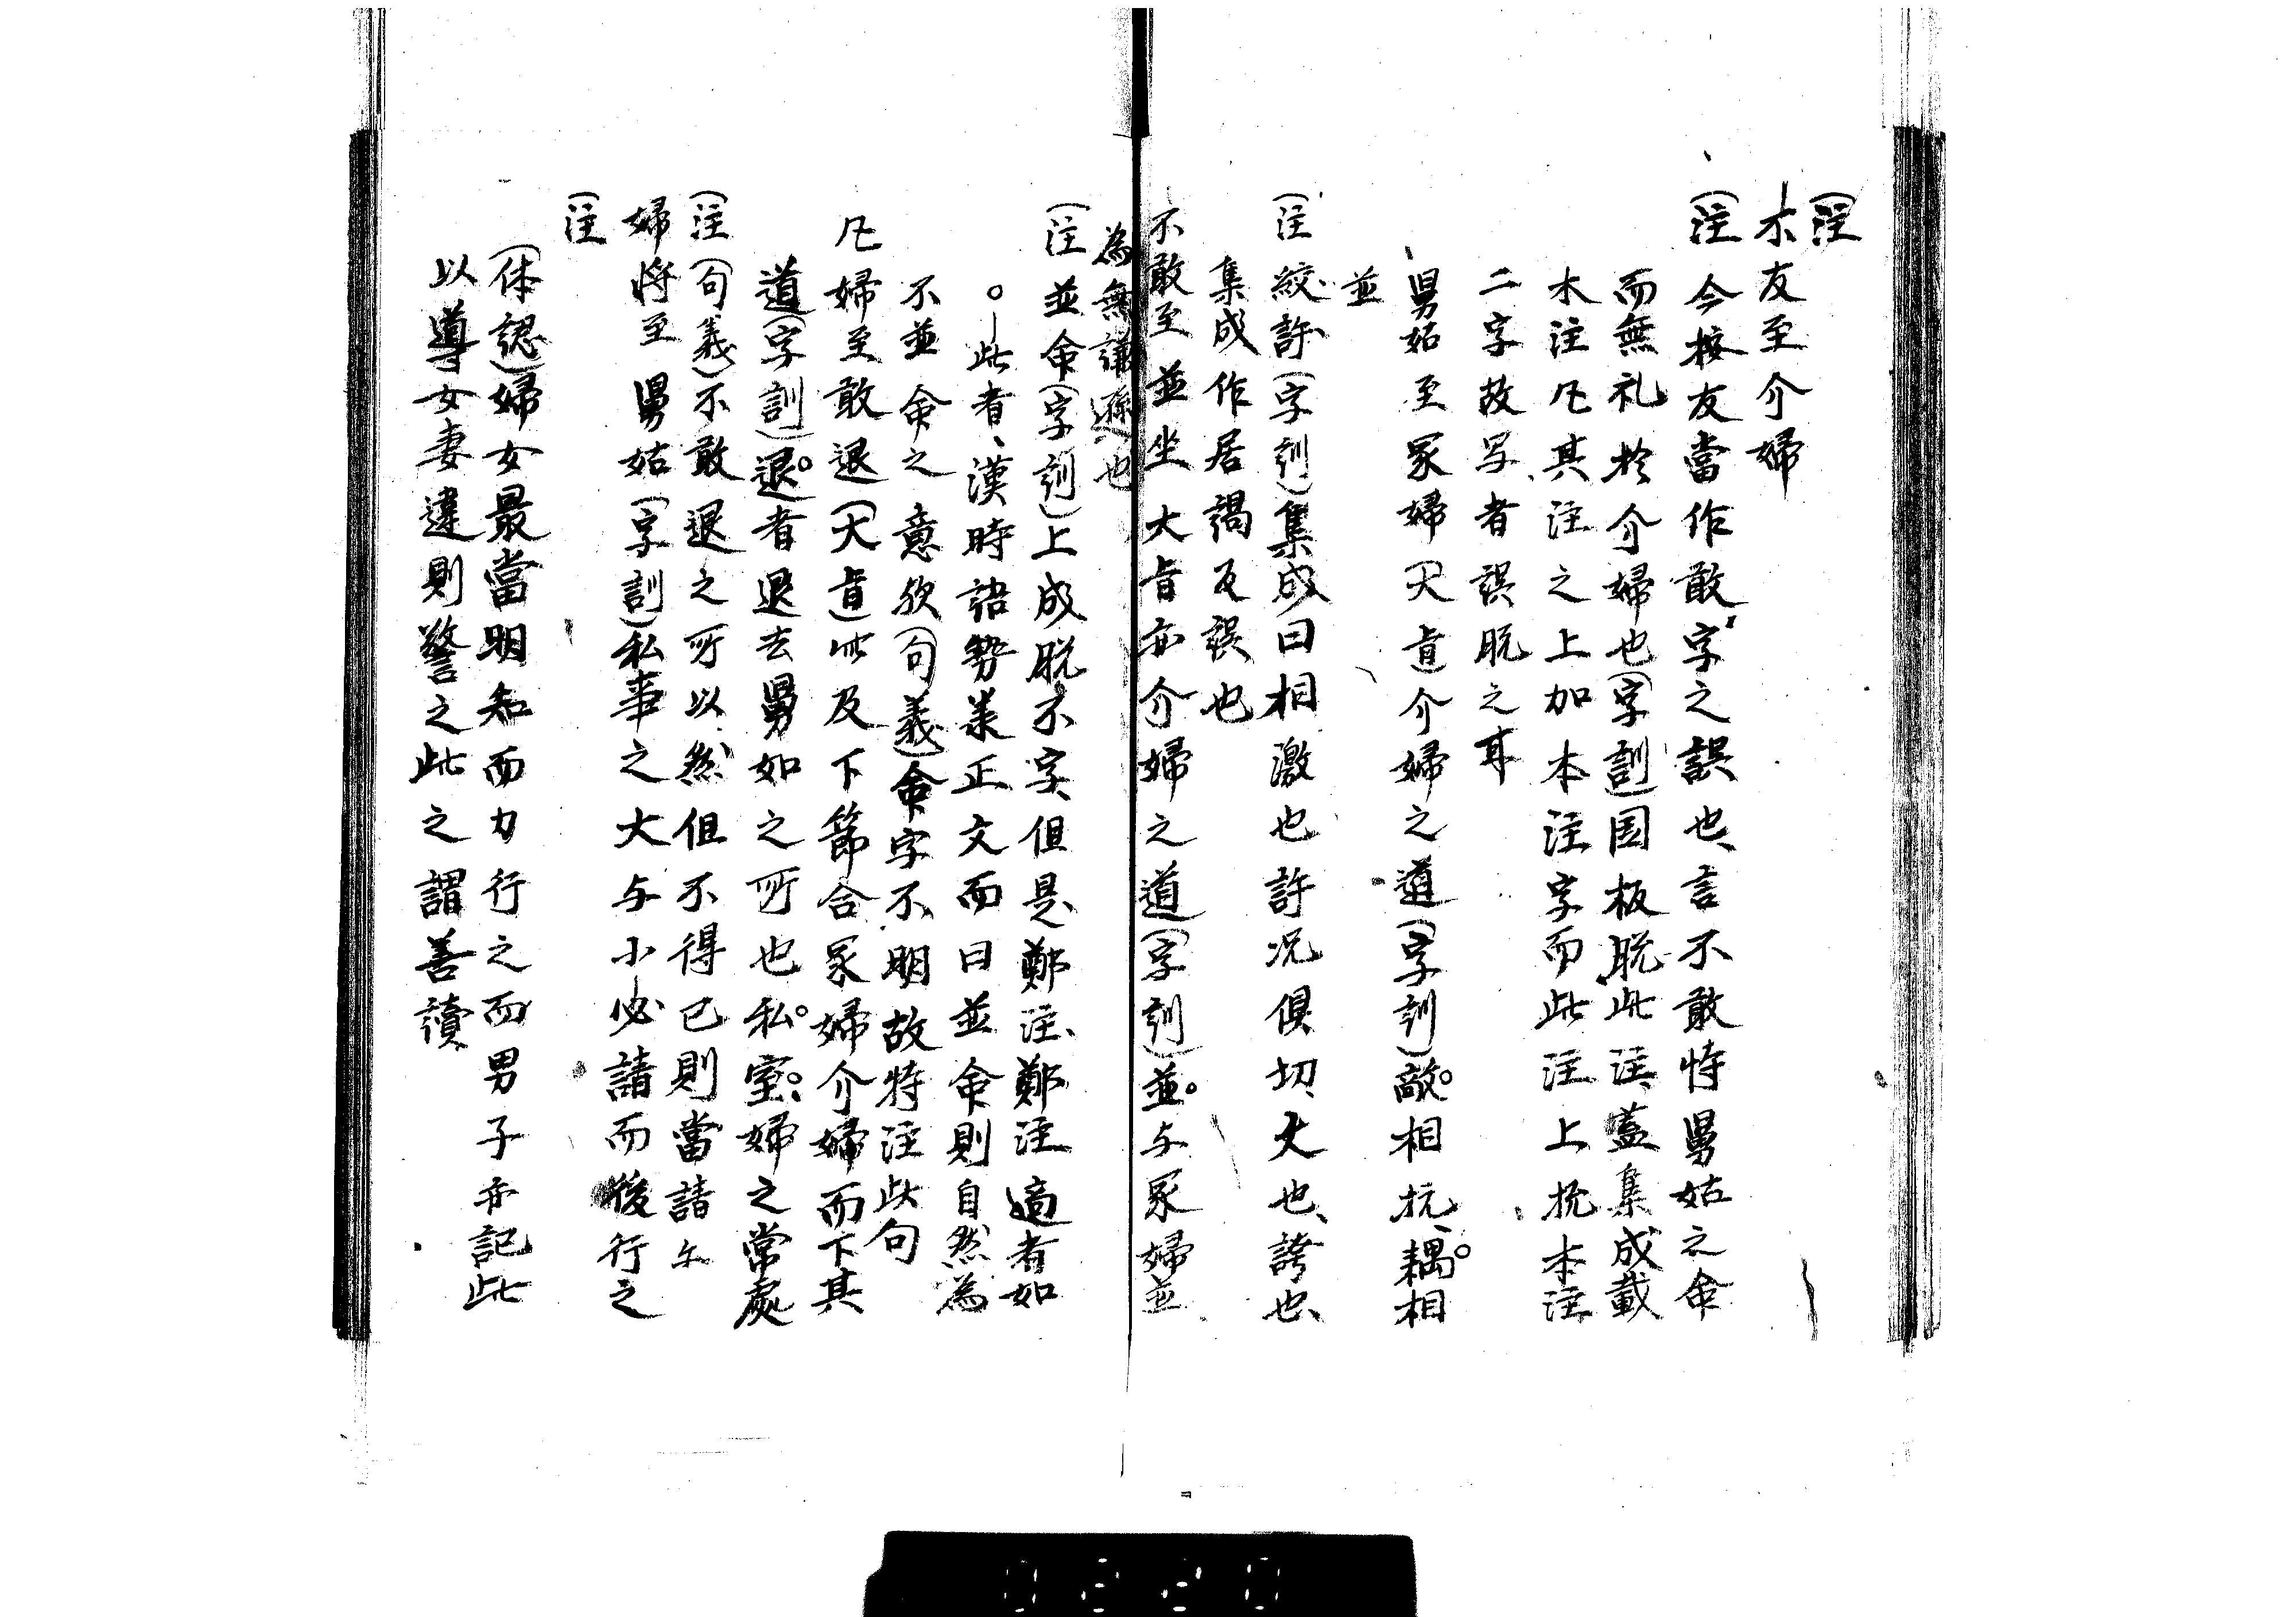 注
不友至介婦
注今按友當作敢字之誤也言不敢恃舅姑之命
而無礼於介婦也字訓国板脱此注蓋集成載
本注凡其注之上加本注字而此注上抗本注
二字故写者誤脱之耳
舅姑至冢婦大旨介婦之道字訓敵相抗耦相
並
注絞許字訓集成曰相激也許况倶切大也誇也
集成作居謁反誤也
不敢至並坐大旨亦介婦之道字訓並与冢婦並
為無謙遜也
注並命字訓上成脱不字但是鄭注鄭注適者如
此者漢時語勢業正文而曰並命則自然為
不並命之意欤句義命字不明故特注此句
凡婦至敢退大旨此及下節合冢婦介婦而下其
道字訓退者退去舅如之所也私室婦之常處
注句義不敢退之所以然但不得已則當請
婦将至舅姑字訓私事之大与小必請而後行之
注
体認婦女最當明知而力行之而男子亦記此
以導女妻違則警之此之謂善讀